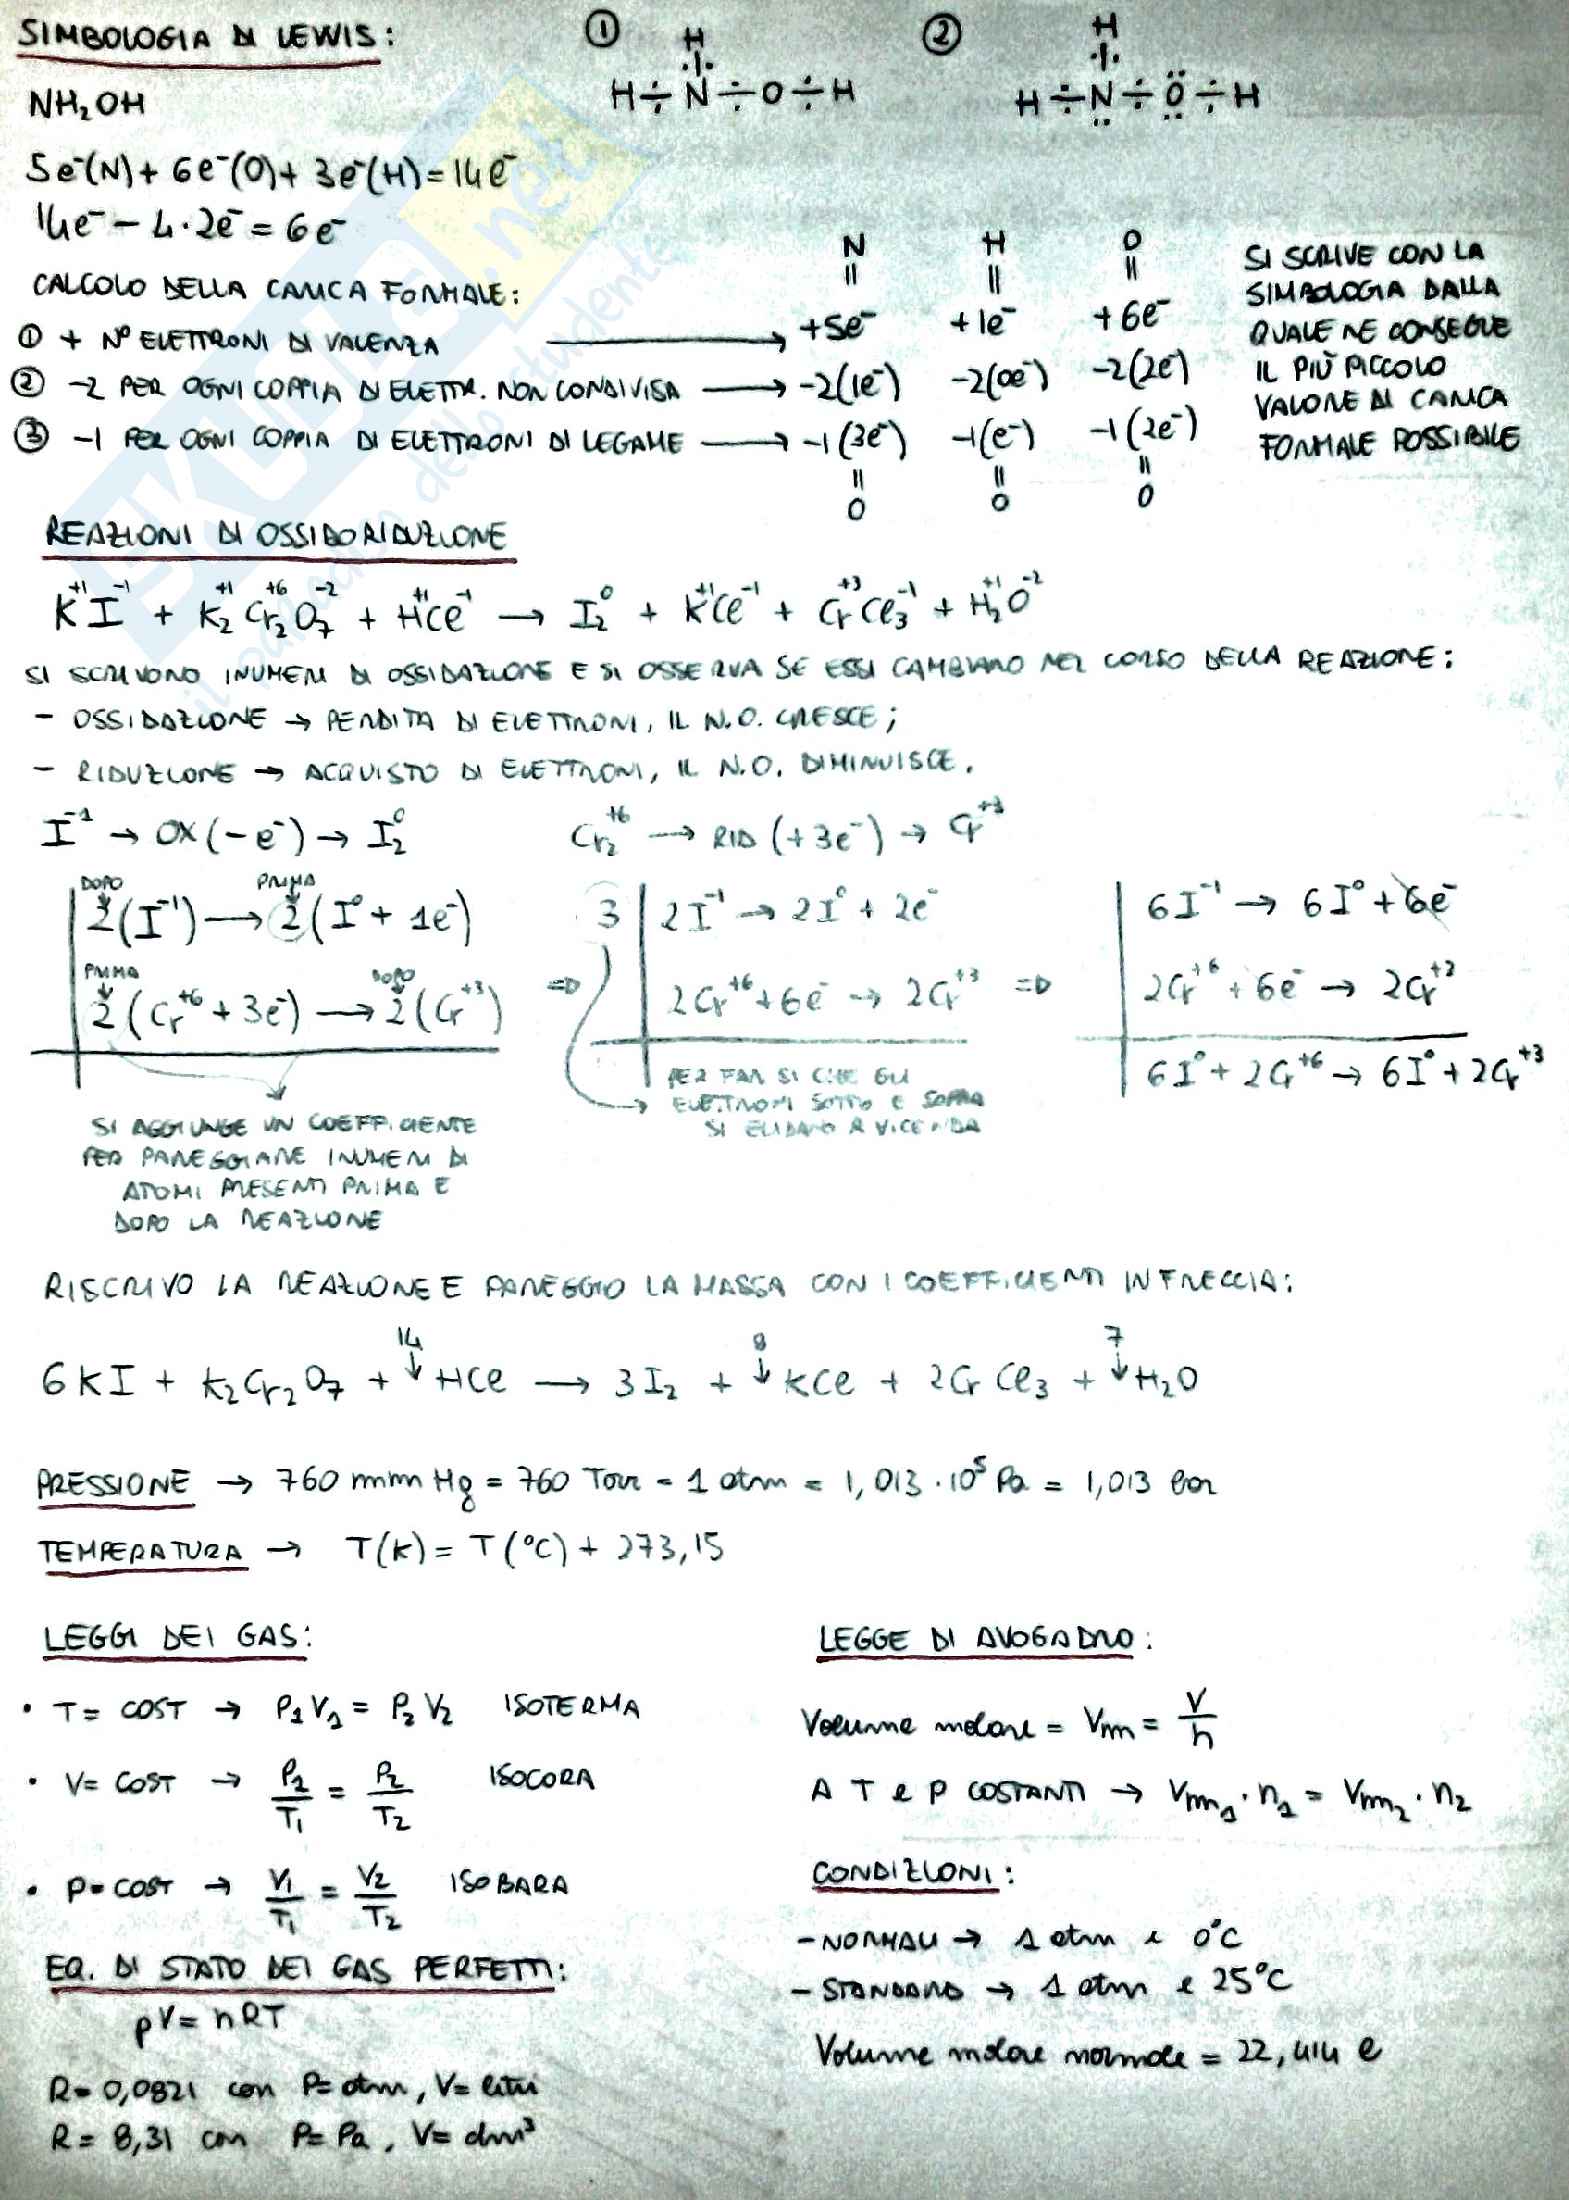 SIMBOLOGIA DI LEWIS:
① H
H ÷ N ÷ O ÷ H
② H
H ÷ N ÷ O ÷ H
NH₂OH
5e⁻(N) + 6e⁻(O) + 3e⁻(H) = 14e⁻
14e⁻ - 4·2e⁻ = 6e⁻
CALCOLO DELLA CARICA FORMALE:
N H O
|| || ||
① + N° ELETTRONI DI VALENZA → +5e⁻ +1e⁻ +6e⁻
② -2 PER OGNI COPPIA DI ELETTR. NON CONDIVISA → -2(1e⁻) -2(0e⁻) -2(2e⁻)
③ -1 PER OGNI COPPIA DI ELETTRONI DI LEGAME → -1(3e⁻) -1(e⁻) -1(2e⁻)
|| || ||
O O O
SI SCRIVE CON LA
SIMBOLOGIA DALLA
QUALE NE CONSEGUE
IL PIÙ PICCOLO
VALORE DI CARICA
FORMALE POSSIBILE
REAZIONI DI OSSIDORIDUZIONE
K⁺¹I⁻¹ + K₂⁺¹Cr₂⁺⁶O₇⁻² + H⁺¹Cl⁻¹ → I₂⁰ + K⁺¹Cl⁻¹ + Cr⁺³Cl₃⁻¹ + H₂⁺¹O⁻²
SI SCRIVONO I NUMERI DI OSSIDAZIONE E SI OSSERVA SE ESSI CAMBIANO NEL CORSO DELLA REAZIONE:
- OSSIDAZIONE → PERDITA DI ELETTRONI, IL N.O. CRESCE;
- RIDUZIONE → ACQUISTO DI ELETTRONI, IL N.O. DIMINUISCE.
I⁻¹ → OX (-e⁻) → I₂⁰
Cr₂⁺⁶ → RID (+3e⁻) → Cr⁺³
DOPO PRIMA
2(I⁻¹) → 2(I⁰ + 1e⁻)
PRIMA DOPO
2(Cr⁺⁶ + 3e⁻) → 2(Cr⁺³)
SI AGGIUNGE UN COEFFICIENTE
PER PAREGGIARE I NUMERI DI
ATOMI PRESENTI PRIMA E
DOPO LA REAZIONE
⇒ 3 | 2I⁻¹ → 2I⁰ + 2e⁻
2Cr⁺⁶ + 6e⁻ → 2Cr⁺³
PER FAR SI CHE GLI
ELETTRONI SOTTO E SOPRA
SI ELIDANO A VICENDA
⇒ 6I⁻¹ → 6I⁰ + 6e⁻
2Cr⁺⁶ + 6e⁻ → 2Cr⁺³
6I⁰ + 2Cr⁺⁶ → 6I⁰ + 2Cr⁺³
RISCRIVO LA REAZIONE E PAREGGIO LA MASSA CON I COEFFICIENTI IN FRECCIA:
14 8 7
6KI + K₂Cr₂O₇ + ↓HCl → 3I₂ + ↓KCl + 2CrCl₃ + ↓H₂O
PRESSIONE → 760 mm Hg = 760 Torr = 1 atm = 1,013·10⁵ Pa = 1,013 bar
TEMPERATURA → T(K) = T(°C) + 273,15
LEGGI DEI GAS:
• T = COST → P₁V₁ = P₂V₂ ISOTERMA
• V = COST → P₁/T₁ = P₂/T₂ ISOCORA
• P = COST → V₁/T₁ = V₂/T₂ ISOBARA
EQ. DI STATO DEI GAS PERFETTI:
pV = nRT
R = 0,0821 con P = atm, V = litri
R = 8,31 con P = Pa, V = dm³
LEGGE DI AVOGADRO:
Volume molare = Vm = V/n
A T e P COSTANTI → Vm₁·n₁ = Vm₂·n₂
CONDIZIONI:
- NORMALI → 1 atm e 0°C
- STANDARD → 1 atm e 25°C
Volume molare normale = 22,414 l
SKUOLA.net
il paradiso dello studente